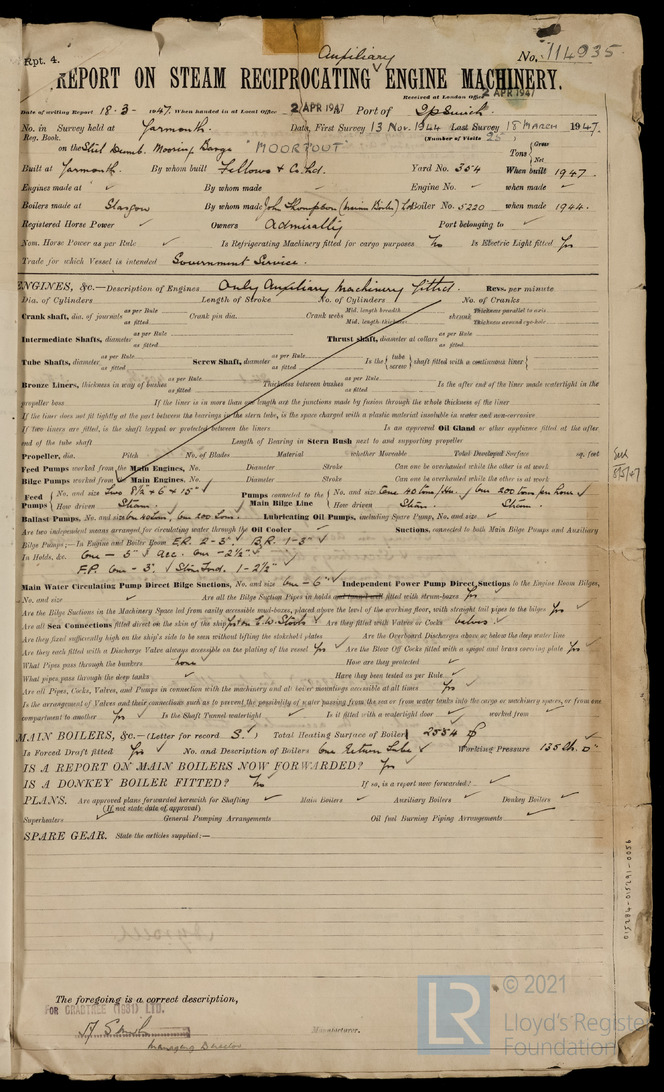 Rpt. 4.
Auxiliary
No. 114935
REPORT ON STEAM RECIPROCATING ENGINE MACHINERY.
Received at London Office 2 APR 1947
Date of writing Report 18-3-1947. When handed in at Local Office 2 APR 1947 Port of Ipswich.
No. in Survey held at Yarmouth. Date, First Survey 13 Nov. 1944 Last Survey 18 MARCH 1947.
Reg. Book. (Number of Visits 25)
on the Mooring Barge "MOORPOUT" Tons Gross Net
Built at Yarmouth. By whom built Fellows & Co. Ltd. Yard No. 354 When built 1947
Engines made at By whom made Engine No. when made
Boilers made at Glasgow By whom made John Thompson (Marine Boilers) Ld Boiler No. 5220 when made 1944.
Registered Horse Power Owners Admiralty Port belonging to
Nom. Horse Power as per Rule Is Refrigerating Machinery fitted for cargo purposes No Is Electric Light fitted Yes
Trade for which Vessel is intended Government Service.
ENGINES, &c.—Description of Engines Only Auxiliary Machinery fitted. Revs. per minute
Dia. of Cylinders Length of Stroke No. of Cylinders No. of Cranks
Crank shaft, dia. of journals as per Rule as fitted Crank pin dia. Crank webs Mid. length breadth Mid. length thickness shrunk Thickness parallel to axis Thickness around eye-hole
Intermediate Shafts, diameter as per Rule as fitted Thrust shaft, diameter at collars as per Rule as fitted
Tube Shafts, diameter as per Rule as fitted Screw Shaft, diameter as per Rule as fitted Is the { tube screw } shaft fitted with a continuous liner {
Bronze Liners, thickness in way of bushes as per Rule as fitted Thickness between bushes as per Rule as fitted Is the after end of the liner made watertight in the
propeller boss If the liner is in more than one length are the junctions made by fusion through the whole thickness of the liner
If the liner does not fit tightly at the part between the bearings in the stern tube, is the space charged with a plastic material insoluble in water and non-corrosive
If two liners are fitted, is the shaft lapped or protected between the liners Is an approved Oil Gland or other appliance fitted at the after
end of the tube shaft Length of Bearing in Stern Bush next to and supporting propeller
Propeller, dia. Pitch No. of Blades Material whether Moveable Total Developed Surface sq. feet
Feed Pumps worked from the Main Engines, No. Diameter Stroke Can one be overhauled while the other is at work
Bilge Pumps worked from the Main Engines, No. Diameter Stroke Can one be overhauled while the other is at work
Feed Pumps { No. and size Two 8½ x 6 x 15" Pumps connected to the Main Bilge Line { No. and size One 40 tons/hr. / One 200 tons per hour
How driven Steam. How driven Steam. Steam.
Ballast Pumps, No. and size One 40 tons, One 200 tons. Lubricating Oil Pumps, including Spare Pump, No. and size.
Are two independent means arranged for circulating water through the Oil Cooler Suctions, connected to both Main Bilge Pumps and Auxiliary
Bilge Pumps;—In Engine and Boiler Room E.R. 2-3". B.R. 1-3"
In Holds, &c. One - 5" One - 2½"
F.P. One - 3". 1-2½"
Main Water Circulating Pump Direct Bilge Suctions, No. and size One - 6" Independent Power Pump Direct Suctions to the Engine Room Bilges,
No. and size Are all the Bilge Suction Pipes in holds fitted with strum-boxes Yes
Are the Bilge Suctions in the Machinery Space led from easily accessible mud-boxes, placed above the level of the working floor, with straight tail pipes to the bilges Yes
Are all Sea Connections fitted direct on the skin of the ship Are they fitted with Valves or Cocks Valves
Are they fixed sufficiently high on the ship's side to be seen without lifting the stokehold plates Are the Overboard Discharges above or below the deep water line
Are they each fitted with a Discharge Valve always accessible on the plating of the vessel Yes Are the Blow Off Cocks fitted with a spigot and brass covering plate Yes
What Pipes pass through the bunkers None How are they protected
What pipes pass through the deep tanks Have they been tested as per Rule
Are all Pipes, Cocks, Valves, and Pumps in connection with the machinery and all boiler mountings accessible at all times Yes
Is the arrangement of Valves and their connections such as to prevent the possibility of water passing from the sea or from water tanks into the cargo or machinery spaces, or from one
compartment to another Yes Is the Shaft Tunnel watertight Is it fitted with a watertight door worked from
MAIN BOILERS, &c.—(Letter for record S.) Total Heating Surface of Boilers 2554
Is Forced Draft fitted Yes No. and Description of Boilers One Return Tube Working Pressure 135 lb.
IS A REPORT ON MAIN BOILERS NOW FORWARDED? Yes
IS A DONKEY BOILER FITTED? No If so, is a report now forwarded?
PLANS. Are approved plans forwarded herewith for Shafting Main Boilers Auxiliary Boilers Donkey Boilers
(If not state date of approval)
Superheaters General Pumping Arrangements Oil fuel Burning Piping Arrangements
SPARE GEAR. State the articles supplied:—
015284-015291-0056
The foregoing is a correct description,
FOR CRABTREE (1931) LTD.
Manufacturer.
Managing Director
LR
© 2021
Lloyd's Register
Foundation